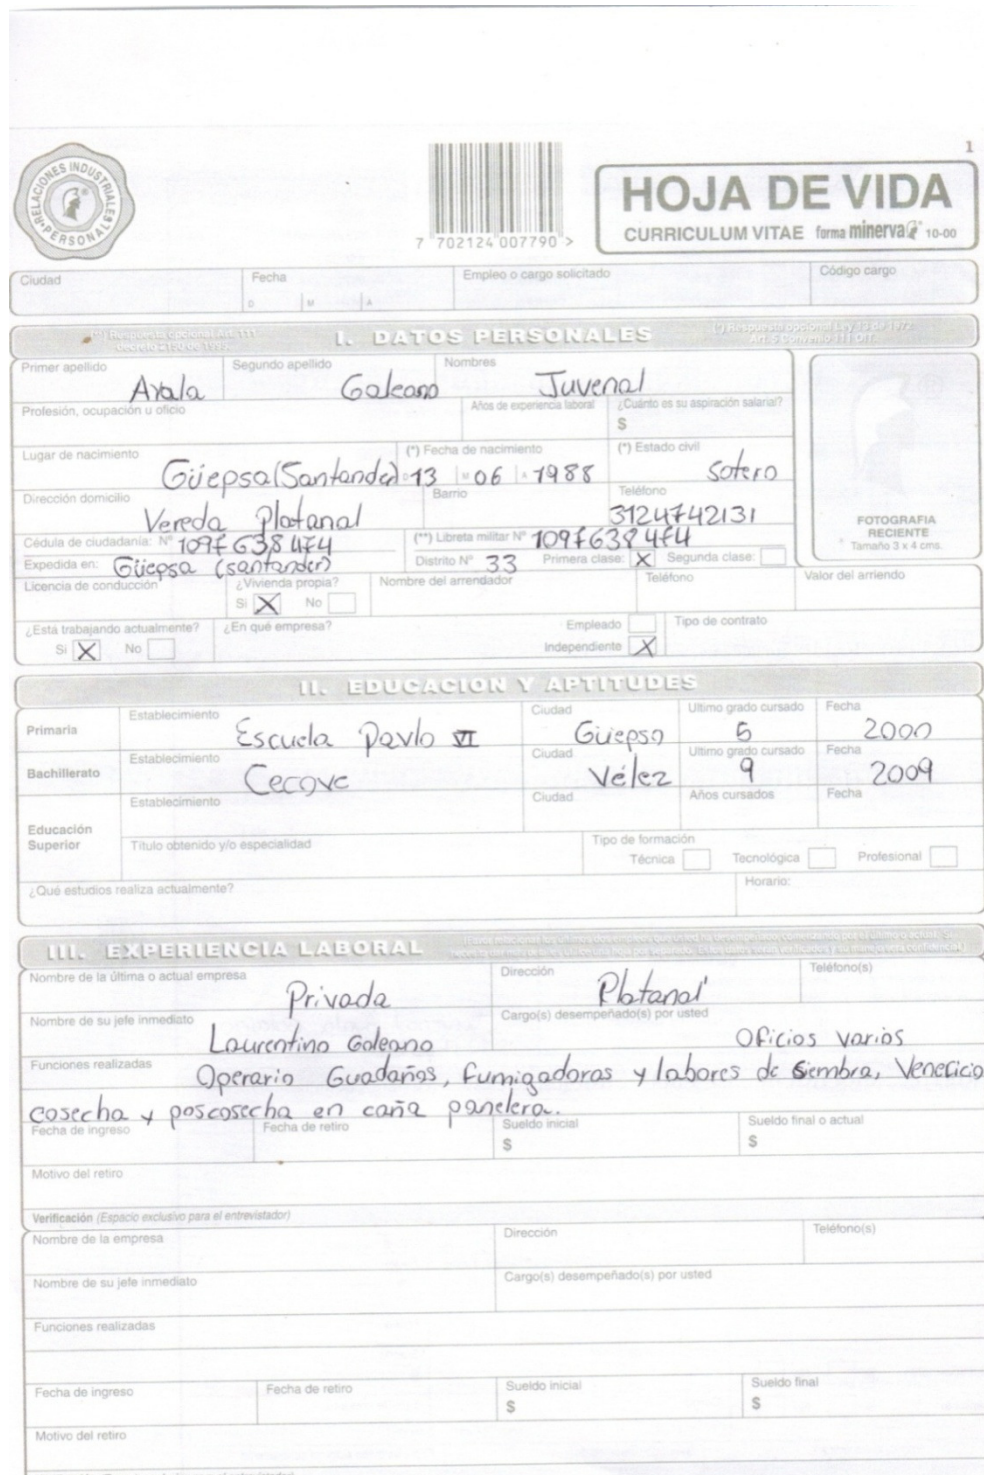 1
RELACIONES INDUSTRIALES
PERSONAL
7 702124 007790 >
HOJA DE VIDA
CURRICULUM VITAE forma minerva 10-00
Ciudad Fecha Empleo o cargo solicitado Código cargo
D M A
(**) Respuesta opcional Art. 111 decreto 2150 de 1995
I. DATOS PERSONALES
(*) Respuesta opcional Ley 13 de 1972 Art. 5 Convenio 111 OIT.
Primer apellido Segundo apellido Nombres
Ayala Galeano Juvenal
Profesión, ocupación u oficio Años de experiencia laboral ¿Cuánto es su aspiración salarial?
$
Lugar de nacimiento (*) Fecha de nacimiento (*) Estado civil
Güepsa (Santander) D 13 M 06 A 1988 Soltero
Dirección domicilio Barrio Teléfono
Vereda Platanal 3124742131
FOTOGRAFIA
RECIENTE
Tamaño 3 x 4 cms.
Cédula de ciudadanía: Nº 1097638474 (**) Libreta militar Nº 1097638474
Expedida en: Güepsa (santander) Distrito Nº 33 Primera clase: X Segunda clase:
Licencia de conducción ¿Vivienda propia? Nombre del arrendador Teléfono Valor del arriendo
Si X No
¿Está trabajando actualmente? ¿En qué empresa? Empleado Tipo de contrato
Si X No Independiente X
II. EDUCACION Y APTITUDES
Primaria Establecimiento Ciudad Ultimo grado cursado Fecha
Escuela Pavlo VI Güepsa 5 2000
Bachillerato Establecimiento Ciudad Ultimo grado cursado Fecha
Cecave Vélez 9 2009
Educación Superior Establecimiento Ciudad Años cursados Fecha
Título obtenido y/o especialidad Tipo de formación
Técnica Tecnológica Profesional
¿Qué estudios realiza actualmente? Horario:
III. EXPERIENCIA LABORAL
Nombre de la última o actual empresa Dirección Teléfono(s)
Privada Platanal
Nombre de su jefe inmediato Cargo(s) desempeñado(s) por usted
Laurentino Galeano Oficios varios
Funciones realizadas
Operario Guadañas, fumigadoras y labores de siembra, Veneficio
cosecha y poscosecha en caña panelera.
Fecha de ingreso Fecha de retiro Sueldo inicial Sueldo final o actual
$ $
Motivo del retiro
Verificación (Espacio exclusivo para el entrevistador)
Nombre de la empresa Dirección Teléfono(s)
Nombre de su jefe inmediato Cargo(s) desempeñado(s) por usted
Funciones realizadas
Fecha de ingreso Fecha de retiro Sueldo inicial Sueldo final
$ $
Motivo del retiro